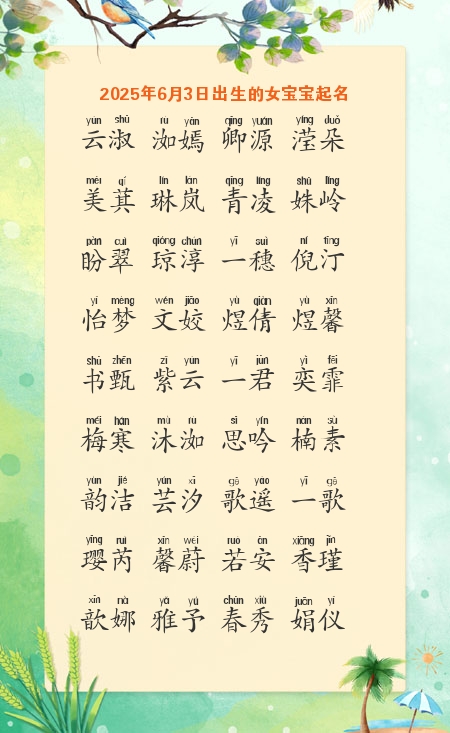 2025年6月3日出生的女宝宝起名
yún shū rù yān qīng yuán yíng duǒ
云淑 洳嫣 卿源 滢朵
měi qí lín lán qīng líng shū lǐng
美萁 琳岚 青凌 姝岭
pàn cuì qióng chún yī suì ní tīng
盼翠 琼淳 一穗 倪汀
yí mèng wén jiāo yù qiàn yù xīn
怡梦 文姣 煜倩 煜馨
shū zhēn zǐ yún yī jūn yì fēi
书甄 紫云 一君 奕霏
méi hán mù rù sī yín nán sù
梅寒 沐洳 思吟 楠素
yùn jié yún xī gē yáo yī gē
韵洁 芸汐 歌遥 一歌
yīng ruì xīn wèi ruò ān xiāng jǐn
璎芮 馨蔚 若安 香瑾
xīn nà yǎ yǔ chūn xiù juān yí
歆娜 雅予 春秀 娟仪